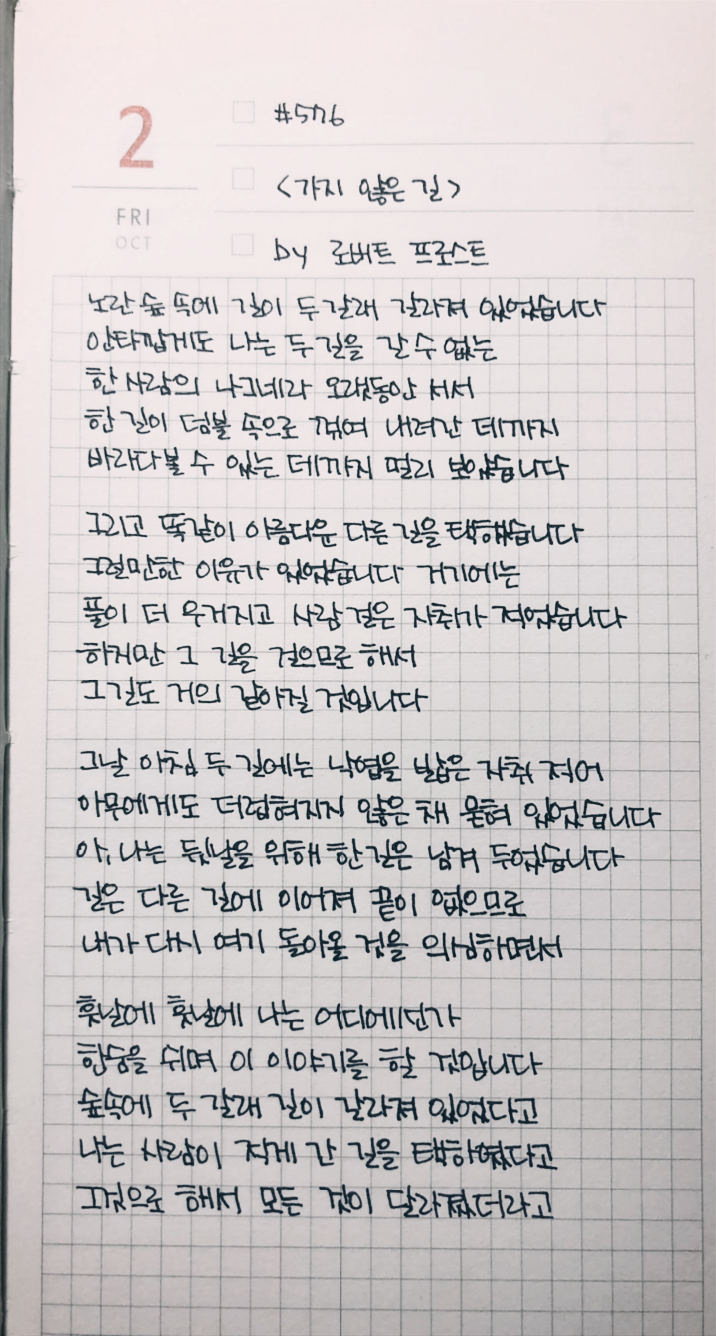 2
FRI
OCT
#576
<가지 않은 길>
by 로버트 프로스트
노란 숲 속에 길이 두 갈래 갈라져 있었습니다
안타깝게도 나는 두 길을 갈 수 없는
한 사람의 나그네라 오랫동안 서서
한 길이 덤불 속으로 꺾여 내려간 데까지
바라다볼 수 있는 데까지 멀리 보았습니다
그리고 똑같이 아름다운 다른 길을 택했습니다
그럴만한 이유가 있었습니다 거기에는
풀이 더 우거지고 사람 걸은 자취가 적었습니다
하지만 그 길을 걸으므로 해서
그길도 거의 같아질 것입니다
그날 아침 두 길에는 낙엽을 밟은 자취 적어
아무에게도 더럽혀지지 않은 채 묻혀 있었습니다
아, 나는 뒷날을 위해 한길은 남겨 두었습니다
길은 다른 길에 이어져 끝이 없으므로
내가 다시 여기 돌아올 것을 의심하면서
훗날에 훗날에 나는 어디에선가
한숨을 쉬며 이 이야기를 할 것입니다
숲속에 두 갈래 길이 갈라져 있었다고
나는 사람이 적게 간 길을 택하였다고
그것으로 해서 모든 것이 달라졌더라고